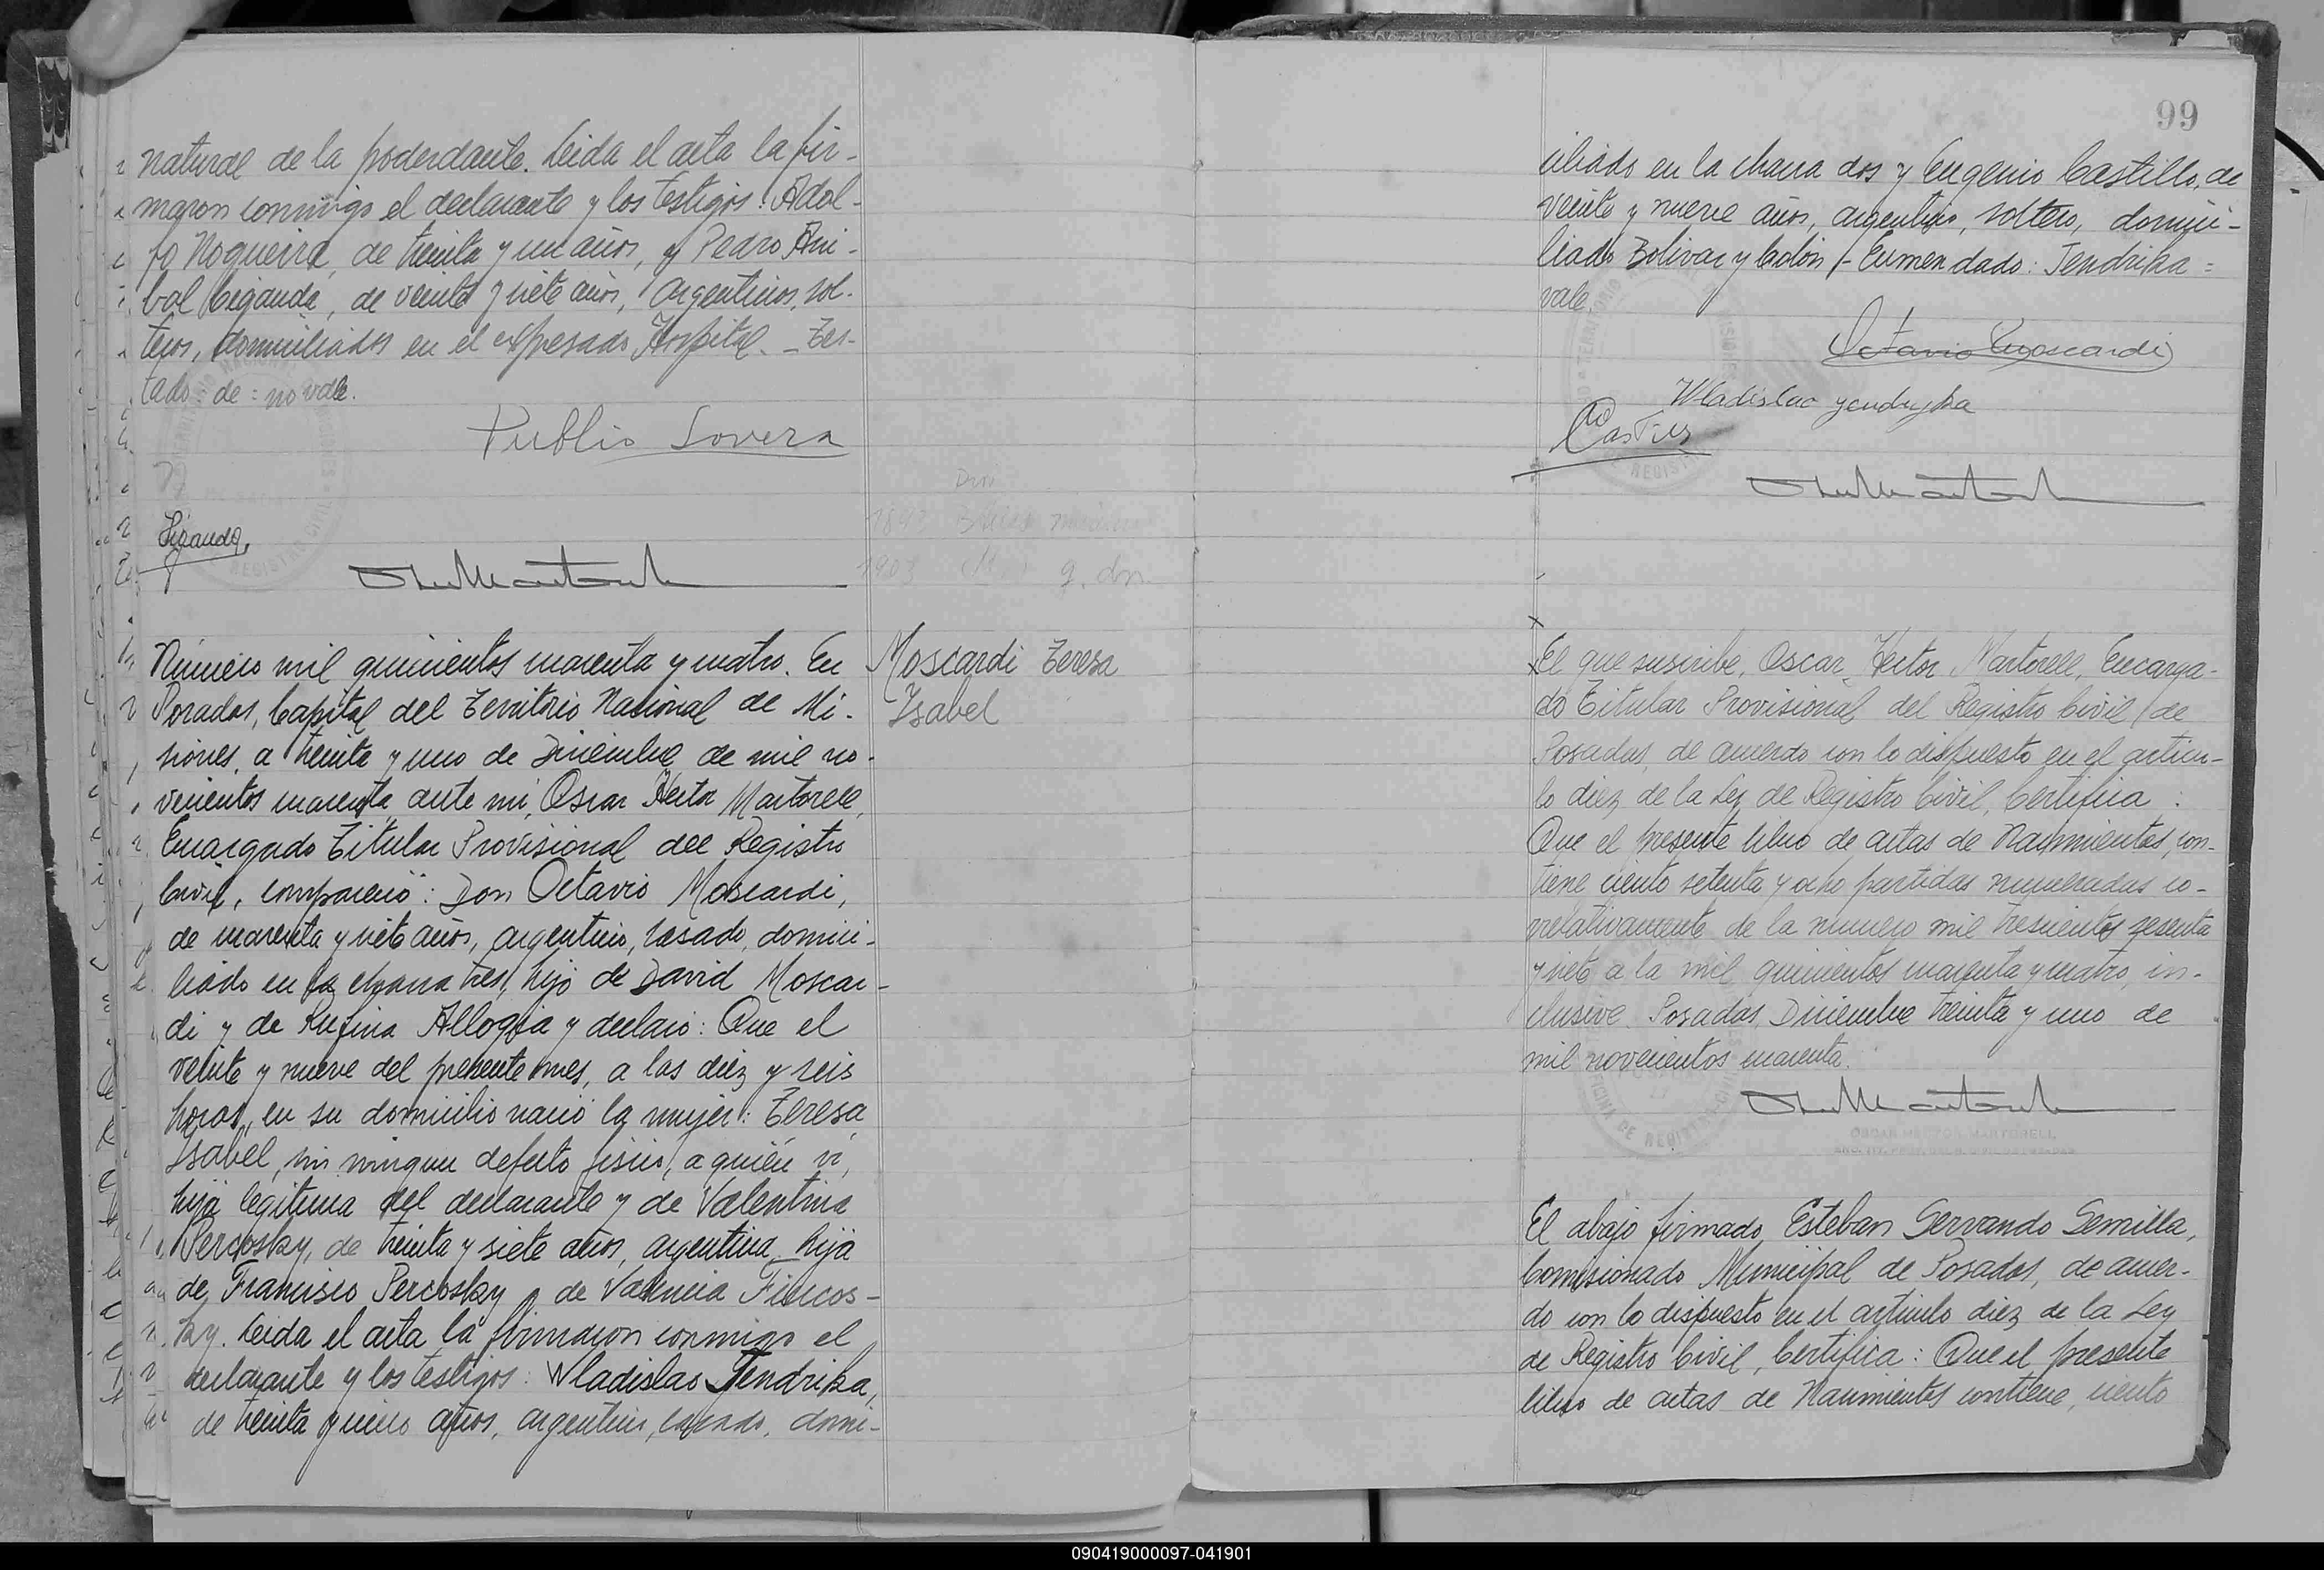 natural de la poderdante. Leida el acta la fir-
maron conmigo el declarante y los testigos: Adol-
fo Nogueira, de treinta y un años, y Pedro Ani-
bal Ciganda, de veinte y siete años, argentinos, sol-
teros, domiciliados en el expresado Hospital. - Tes-
tado: de: no vale.
Publio Lovera
OMartorell
Número mil quinientos cuarenta y cuatro. En
Posadas, Capital del Territorio Nacional de Mi-
siones, a treinta y uno de Diciembre de mil no-
vecientos cuarenta, ante mi, Oscar Hector Martorell,
Encargado Titular Provisional del Registro
Civil, compareció: Don Octavio Moscardi,
de cuarenta y siete años, argentino, casado, domici-
liado en la chacra tres, hijo de David Moscar-
di y de Rufina Allogia y declaró: Que el
veinte y nueve del presente mes, a las diez y seis
horas, en su domicilio nació la mujer: Teresa
Isabel, sin ningun defecto fisico, a quién vi,
hija legitima del declarante y de Valentina
Percosky, de treinta y siete años, argentina, hija
de Francisco Percosky y de Valencia Fincos-
ky. Leida el acta la firmaron conmigo el
declarante y los testigos: Wladislao Jendrika,
de treinta y cinco años, argentino, casado, domi-
Moscardi Teresa
Isabel
99
ciliado en la chacra dos y Eugenio Castillo, de
veinte y nueve años, argentino, soltero, domici-
liado Bolivar y Colón - Enmendado: Jendrika =
vale.
Octavio Moscardi
Wladislao yendryka
Castillo
OMartorell
El que suscribe, Oscar Hector Martorell, Encarga-
do Titular Provisional del Registro Civil de
Posadas, de acuerdo con lo dispuesto en el articu-
lo diez de la Ley de Registro Civil, Certifica:
Que el presente libro de actas de Nacimientos, con-
tiene ciento setenta y ocho partidas numeradas co-
rrelativamente de la numero mil trescientos sesenta
y siete a la mil quinientos cuarenta y cuatro, in-
clusive. Posadas, Diciembre treinta y uno de
mil novecientos cuarenta.
OMartorell
OSCAR HECTOR MARTORELL
El abajo firmado, Esteban Servando Semilla,
Comisionado Municipal de Posadas, de acuer-
do con lo dispuesto en el articulo diez de la Ley
de Registro Civil, Certifica: Que el presente
libro de actas de Nacimientos contiene, ciento
090419000097-041901